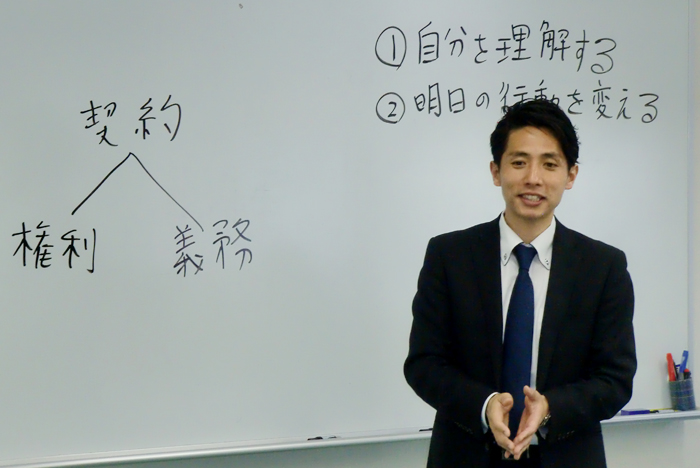 ① 自分を理解する
② 明日の行動を変える
契約
権利 義務